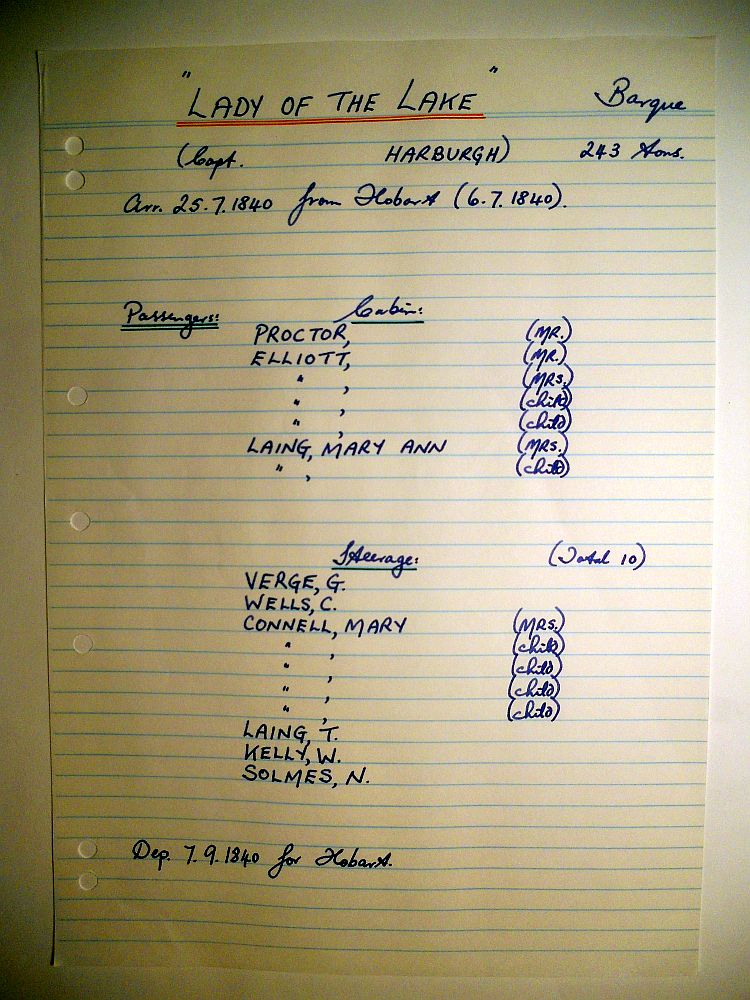 "LADY OF THE LAKE" Barque
(Capt. HARBURGH) 243 tons.
Arr. 25.7.1840 from Hobart (6.7.1840).
Passengers: Cabin:
PROCTOR, (MR.)
ELLIOTT, (MR.)
" , (MRS.)
" , (child)
" , (child)
LAING, MARY ANN (MRS.)
" , (child)
Steerage: (Total 10)
VERGE, G.
WELLS, C.
CONNELL, MARY (MRS.)
" , (child)
" , (child)
" , (child)
" , (child)
LAING, T.
KELLY, W.
SOLMES, N.
Dep. 7.9.1840 for Hobart.